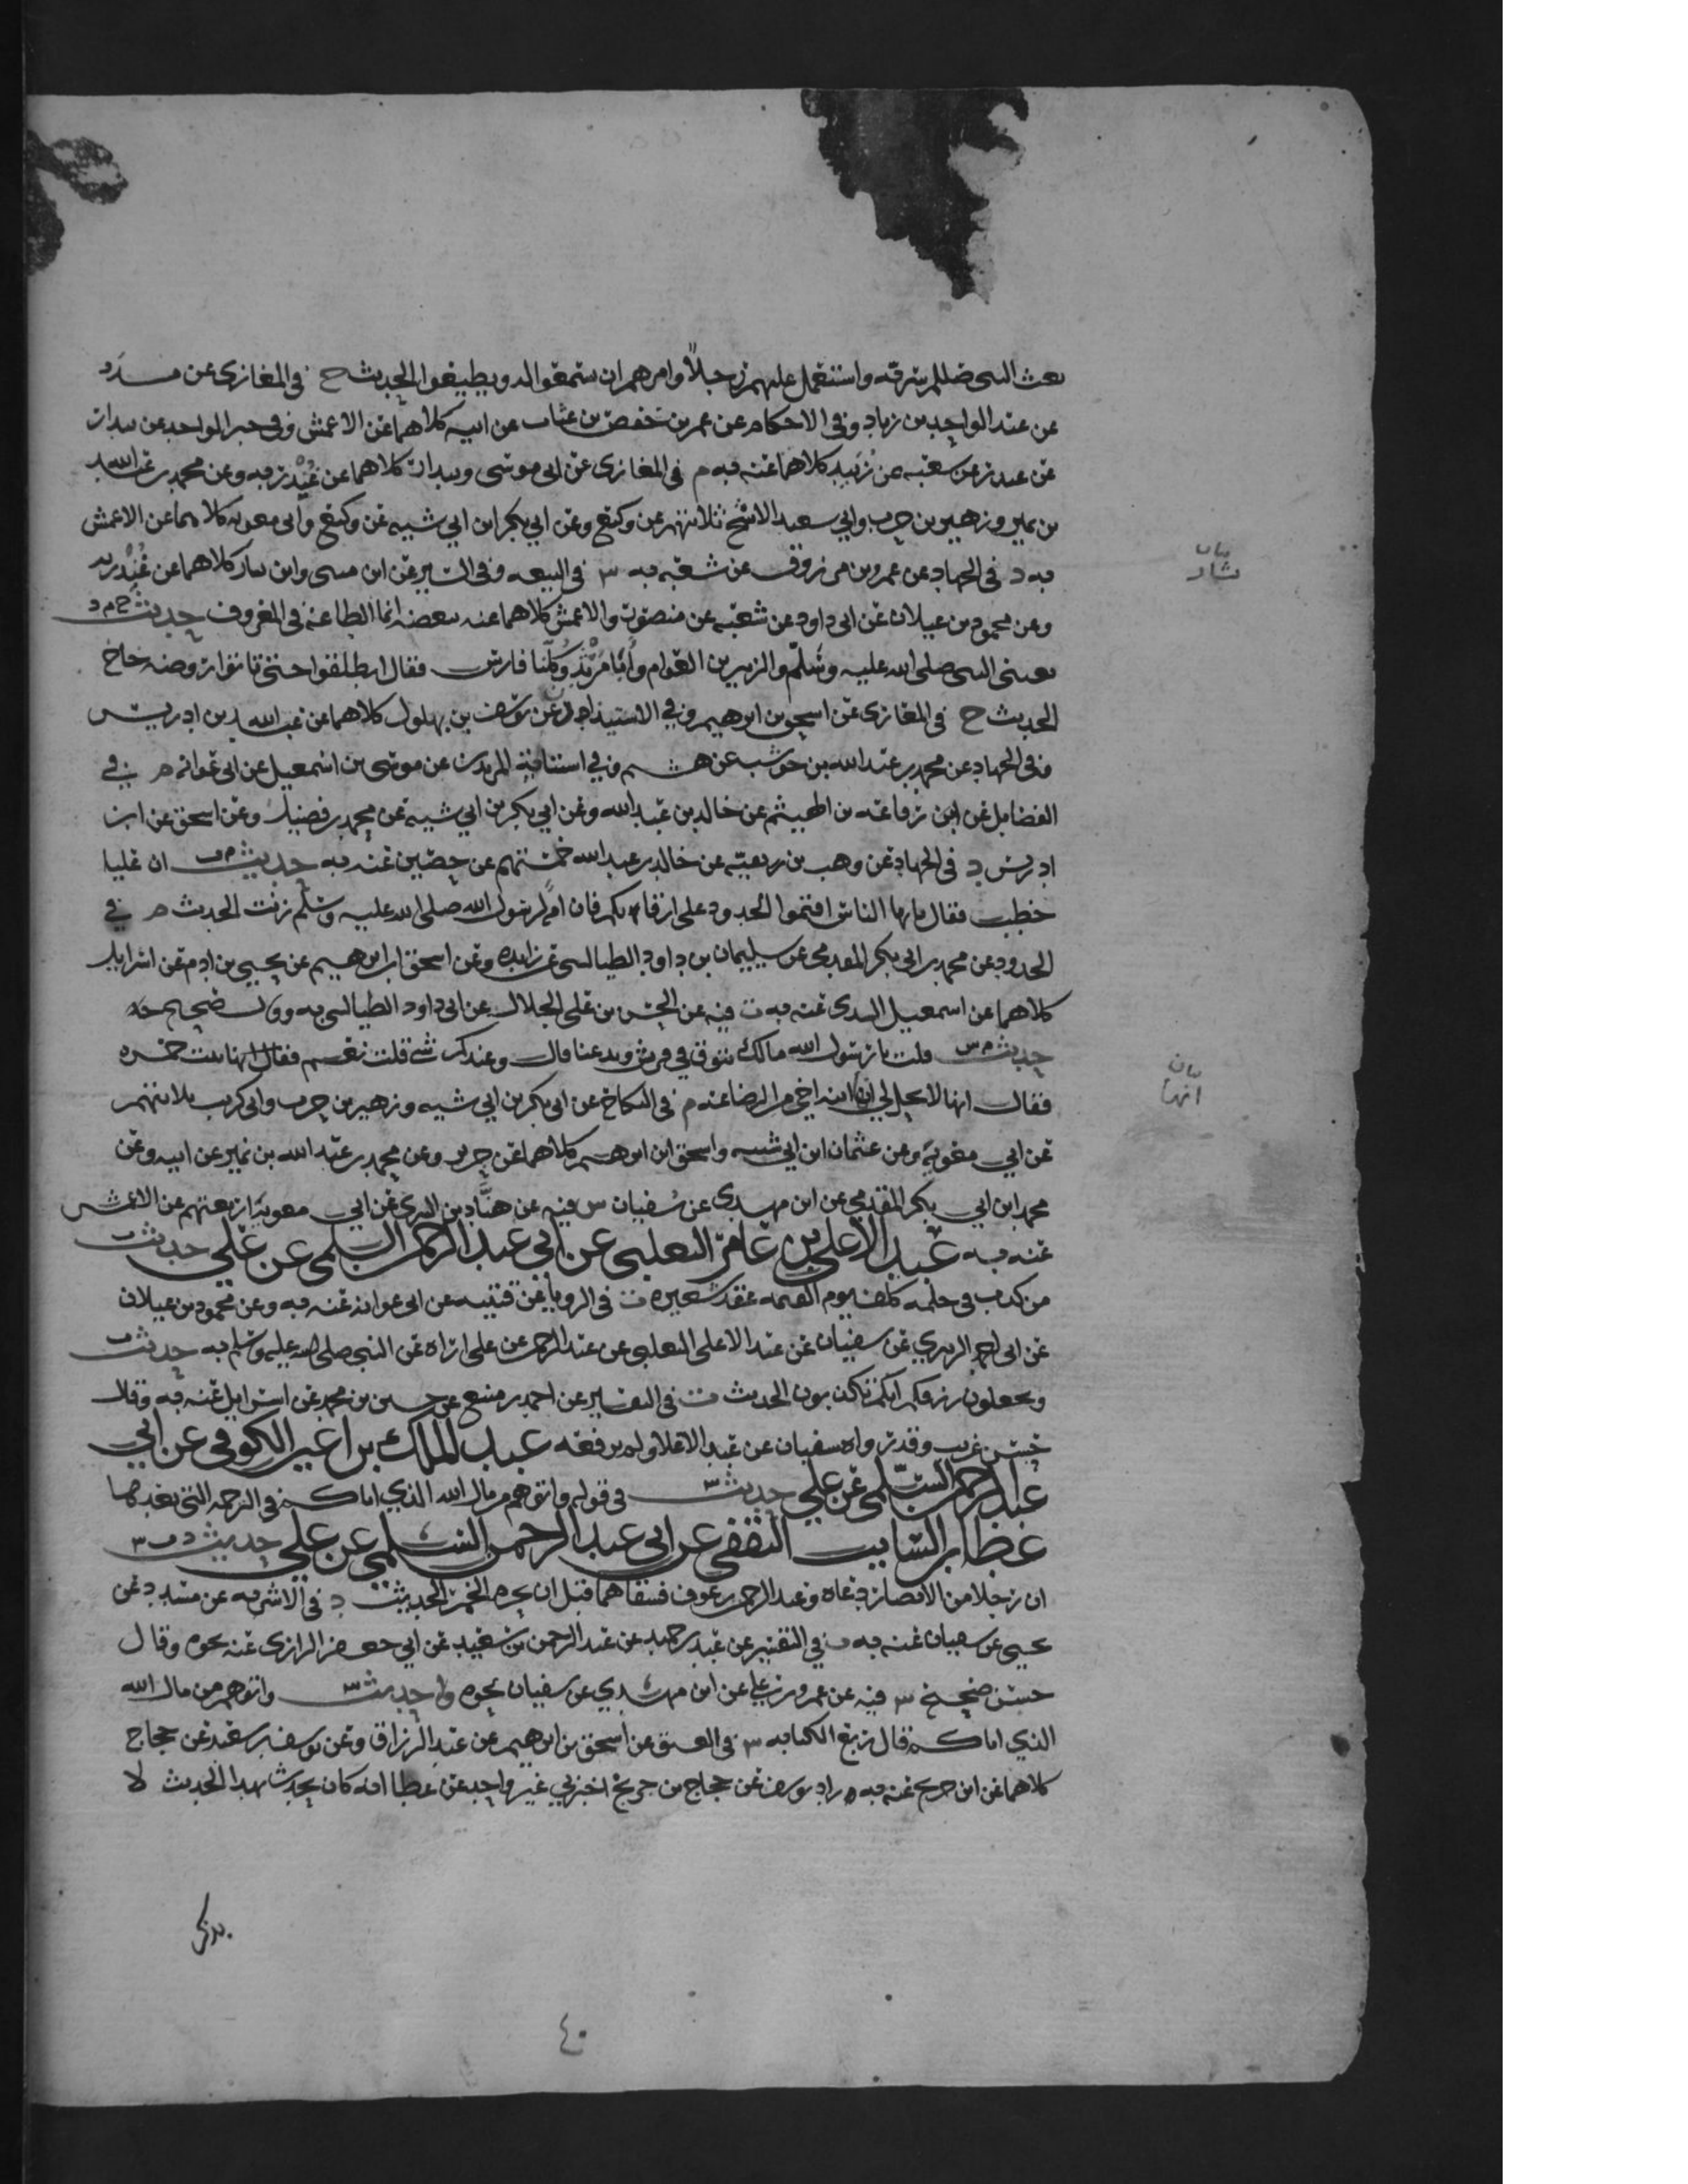 بعث النبي صللم سرية واستعمل عليهم رجلاً وامرهم ان يستمعوا له ويطيعوا الحديث خ في المغازي عن مسدد
عن عبد الواحد بن زياد وفي الاحكام عن عمر بن حفص بن غياث عن ابيه كلاهما عن الاعمش وفي خبر الواحد عن بندار
عن غندر عن شعبه عن زبيد كلاهما عنه به م في المغازي عن ابي موسى وبندار كلاهما عن غندر به وعن محمد بن عبد الله
بن نمير وزهير بن حرب وابي سعيد الاشج ثلاثتهم عن وكيع وعن ابي بكر ابن ابي شيبه عن وكيع وابي معويه كلاهما عن الاعمش
به د في الجهاد عن عمرو بن مرزوق عن شعبه به س في البيعه وفي السير عن ابن مثنى وابن بشار كلاهما عن غندر به
وعن محمود بن غيلان عن ابي داود عن شعبه عن منصور والاعمش كلاهما عنه ببعضه انما الطاعة في المعروف حديث خ م د
بعثني النبي صلى الله عليه وسلم والزبير بن العوام وأبا مرثد وكلنا فارس فقال انطلقوا حتى تاتوا روضه خاخ
الحديث خ في المغازي عن اسحق بن ابرهيم وفي الاستيذان عن يوسف بن بهلول كلاهما عن عبد الله بن ادريس
وفي الجهاد عن محمد بن عبد الله بن حوشب عن هشيم وفي استتابة المرتدين عن موسى بن اسمعيل عن ابي عوانه م في
الفضايل عن ابن رفاعه بن الهيثم عن خالد بن عبد الله وعن ابي بكر بن ابي شيبه عن محمد بن فضيل وعن اسحق عن ابن
ادريس د في الجهاد عن وهب بن ربعيه عن خالد بن عبد الله خمستهم عن حصين عنه به حديث م ت ان عليا
خطب فقال يايها الناس اقيموا الحدود على ارقائكم فان امة لرسول الله صلى الله عليه وسلم زنت الحديث م في
الحدود عن محمد بن ابي بكر المقدمي عن سليمان بن داود الطيالسي عن زايده وعن اسحق ابن ابرهيم عن يحيى بن ادم عن اسرايل
كلاهما عن اسمعيل السدي عنه به ت فيه عن الحسن بن علي الخلال عن ابي داود الطيالسي به وقال صحيح
حديث م س قلت يا رسول الله مالك تتوق في قريش وتدعنا قال وعندك شي قلت نعم فقال انها بنت حمزه
فقال انها لا تحل لي انها ابنه اخي من الرضاعة م في النكاح عن ابي بكر بن ابي شيبه وزهير بن حرب وابي كريب ثلاثتهم
عن ابي معوية وعن عثمان ابن ابي شيبه واسحق ابن ابرهيم كلاهما عن جرير وعن محمد بن عبد الله بن نمير عن ابيه وعن
محمد ابن ابي بكر المقدمي عن ابن مهدي عن سفيان س فيه عن هنّاد بن السري عن ابي معوية اربعتهم عن الاعمش
عنه به عبد الاعلى بن عامر الثعلبي عن ابي عبد الرحمن السلمي عن علي حديث ت
من كذب في حلمه كلف يوم القيمه عقد شعيره ت في الرويا عن قتيبه عن ابي عوانه عنه به وعن محمود بن غيلان
عن ابي احمد الزبيري عن سفيان عن عبد الاعلى الثعلبي عن عبد الرحمن عن علي اراه عن النبي صلى الله عليه وسلم به حديث ت
وتجعلون رزقكم انكم تكذبون الحديث ت في التفسير عن احمد بن منيع عن حسين بن محمد عن اسرايل عنه به وقال
حسن غريب وقد رواه سفيان عن عبد الاعلا ولم يرفعه عبد الملك بن اعير الكوفي عن ابي
عبد الرحمن السلمي عن علي حديث س في قوله واتوهم من مال الله الذي اتاكم في الترجمه التي بعدها
عطا بن السايب الثقفي عن ابي عبد الرحمن السلمي عن علي حديث د ت س
ان رجلا من الانصار دعاه وعبد الرحمن بن عوف فسقاهما قبل ان يحرم الخمر الحديث د في الاشربه عن مسدد عن
يحيى عن سفيان عنه به ت في التفسير عن عبد بن حميد عن عبد الرحمن بن سعيد عن ابي جعفر الرازي عنه نحوه وقال
حسن صحيح س فيه عن عمرو بن علي عن ابن مهدي عن سفيان نحوه حديث س واتوهم من مال الله
الذي اتاكم قال ربع الكتابه س في العتق عن اسحق بن ابرهيم عن عبد الرزاق وعن يوسف بن سعيد عن حجاج
كلاهما عن ابن جريج عنه به زاد يوسف عن حجاج بن جريج اخبرني غير واحد عن عطا انه كان يحدث بهذا الحديث لا
يذكر
٤٠
بيان
بشار
بيان
انها